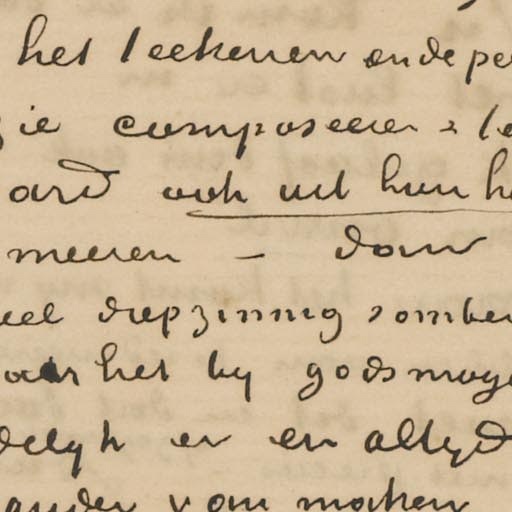 het teekenen en de pe
zie composeeren & te
ard ook uit hun h
meeren – donc
eel diepzinnig somber
aar het by gods moge
delyk er en altyd
ander van maken